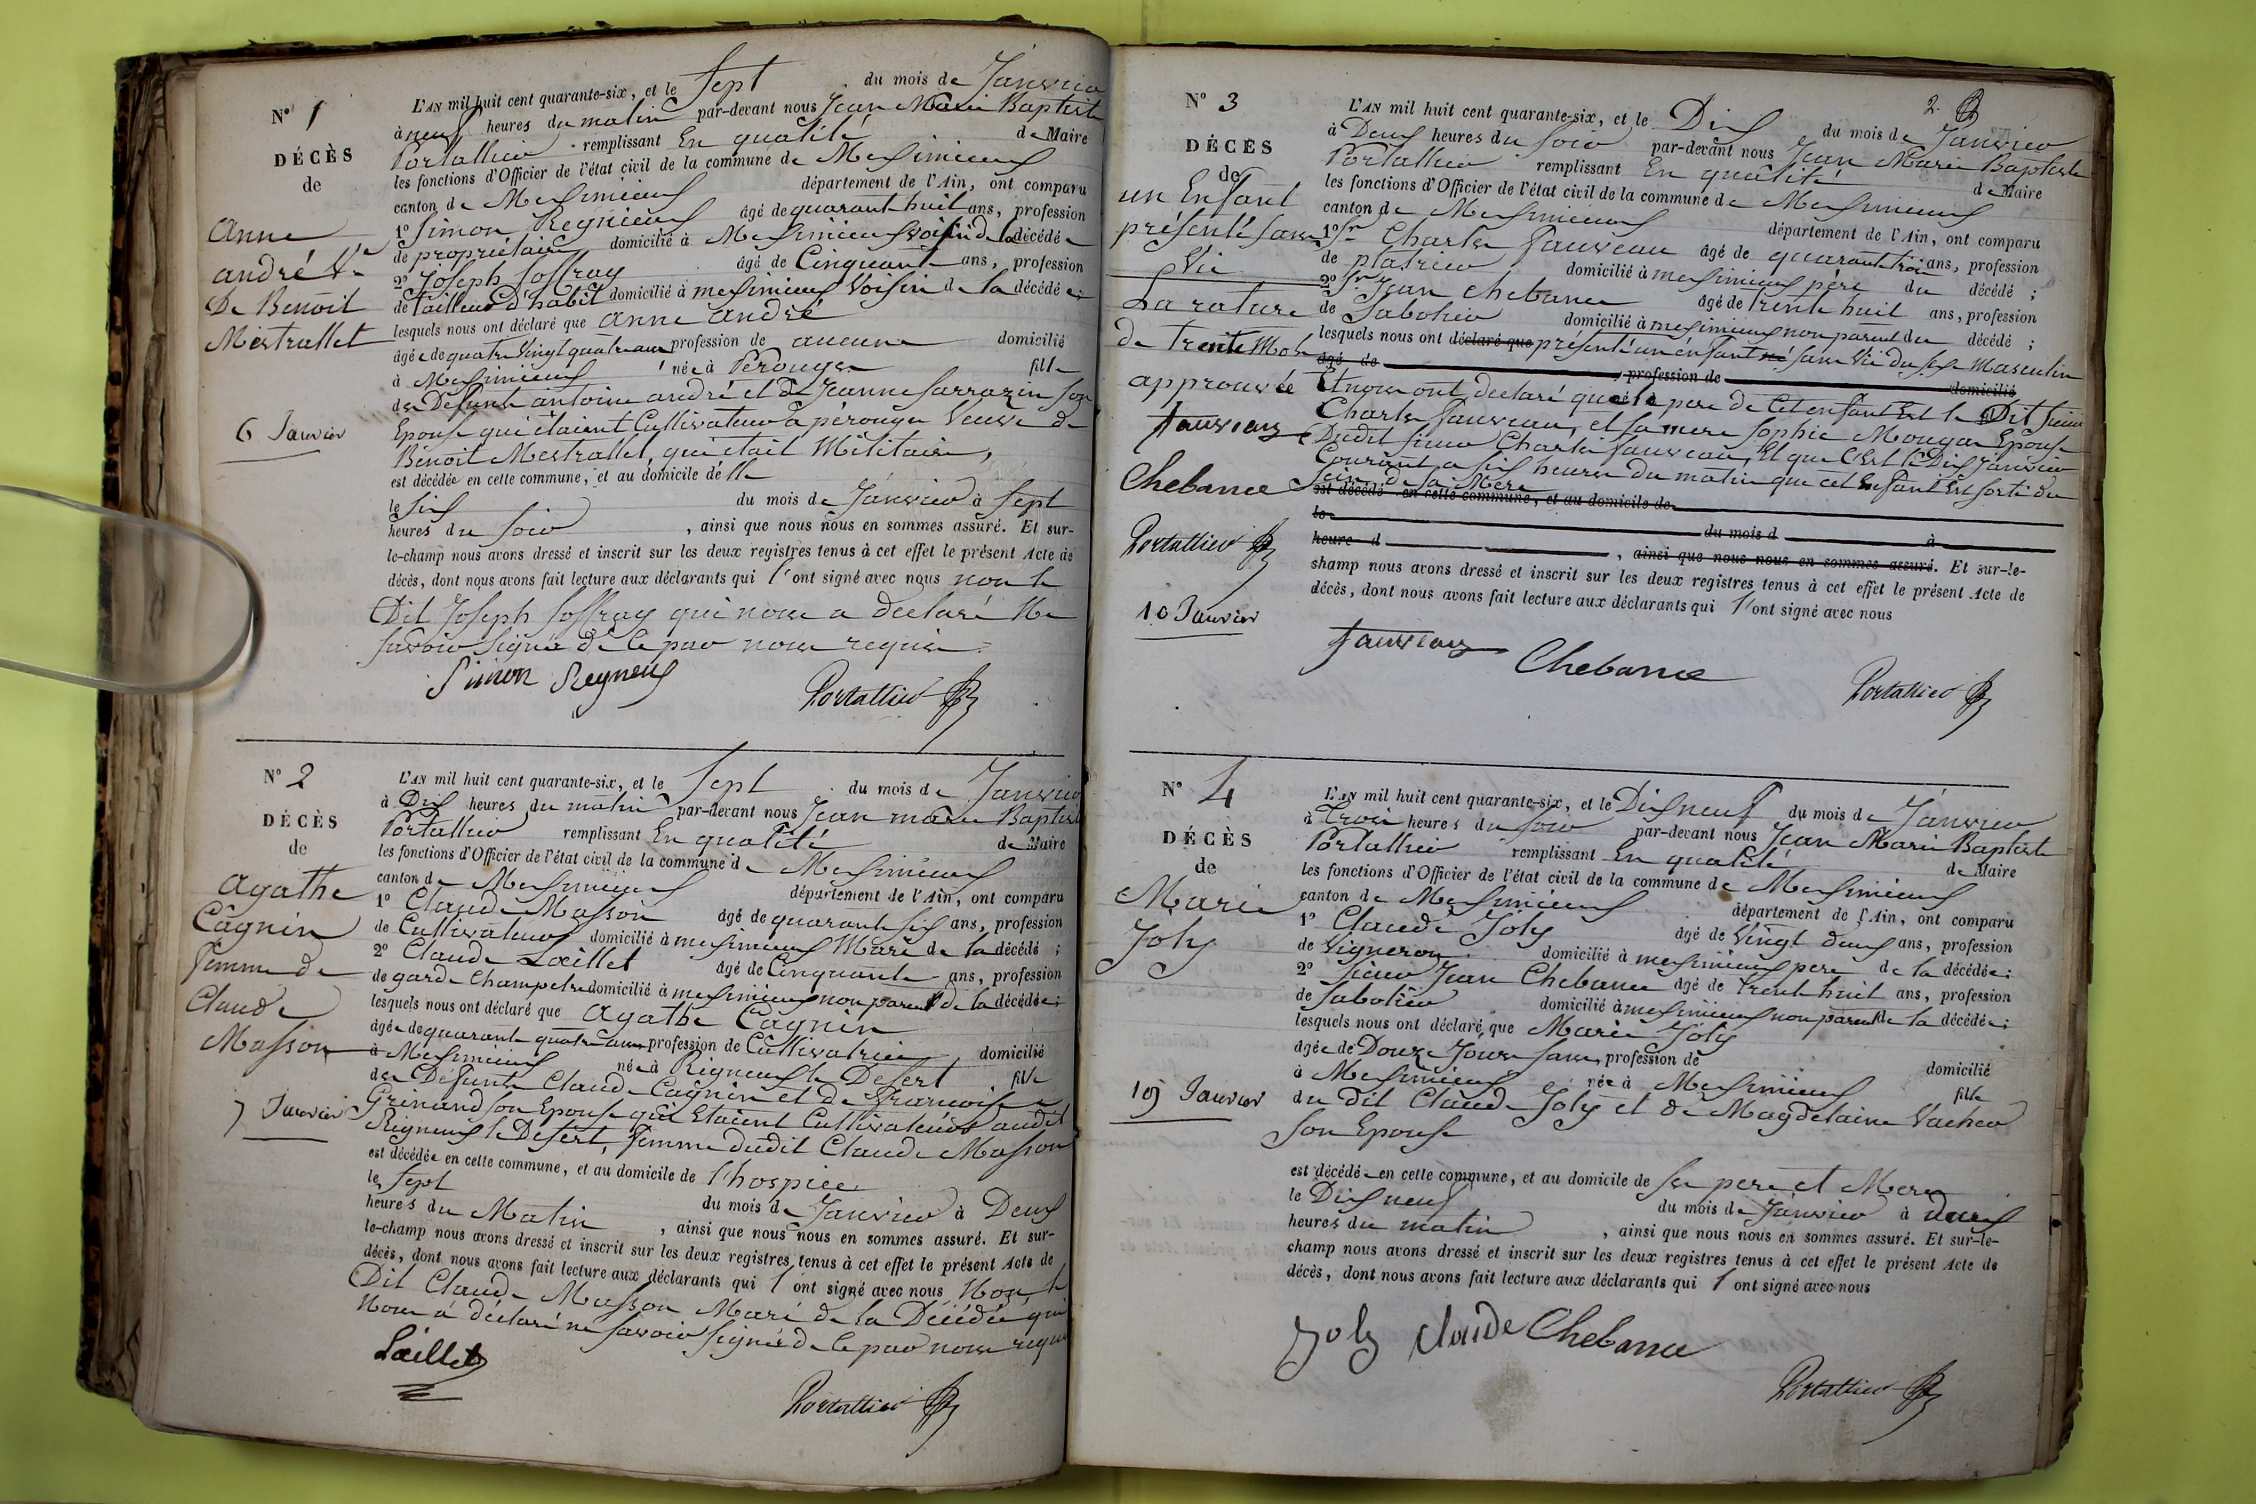 N° 1
DÉCÈS
de
Anne
André Ve
De Benoit
Mestrallet
6 Janvier
L'AN mil huit cent quarante-six, et le Sept du mois de Janvier
à neuf heures du matin par-devant nous Jean Marie Baptiste
Portallier remplissant En qualité de Maire
les fonctions d'Officier de l'état civil de la commune de Meximieux
canton de Meximieux département de l'Ain, ont comparu
1° Simon Regnieux âgé de quarante huit ans, profession
de propriétaire domicilié à Meximieux voisin de la décédée
2° Joseph Soffray âgé de Cinquante ans, profession
de tailleur D'habit domicilié à meximieux Voisin de la décédée;
lesquels nous ont déclaré que anne andré
âgée de quatre Vingt quatre ans profession de aucune domicilié
à Meximieux née à Pérouges fille
des Defunts antoine andré et de Jeanne Sarrazin son
Epouse qui étaient Cultivateurs à pérouges Veuve de
Bénoit Mestrallet, qui était Militaire,
est décédée en cette commune, et au domicile d'elle
le Six du mois de Janvier à Sept
heures du Soir, ainsi que nous nous en sommes assuré. Et sur-
le-champ nous avons dressé et inscrit sur les deux registres tenus à cet effet le présent Acte de
décès, dont nous avons fait lecture aux déclarants qui l'ont signé avec nous non le
Dit Joseph Soffray qui nous a déclaré Ne
Savoir Signé de ce par nous requis
Simon Regneux
Portallier
N° 2
DÉCÈS
de
Agathe
Cagnin
femme de
Claude
Masson
7 Janvier
L'AN mil huit cent quarante-six, et le Sept du mois de Janvier
à Dix heures du matin par-devant nous Jean marie Baptiste
Portallier remplissant En qualité de Maire
les fonctions d'Officier de l'état civil de la commune de Meximieux
canton de Meximieux département de l'Ain, ont comparu
1° Claude Masson âgé de quarante six ans, profession
de Cultivateur domicilié à meximieux Mari de la décédé;
2° Claude Lœillet âgé de Cinquante ans, profession
de garde Champetre domicilié à meximieux non parent de la décédée;
lesquels nous ont déclaré que Agathe Cagnin
âgée de quarante quatre ans profession de Cultivatrice, domicilié
à Meximieux née à Rigneux le Desert fille
des Défunts Claude Cagnin et de Francoise
Grinand son Epouse qui Etaient Cultivateurs audit
Rigneux le Desert, femme dudit Claude Masson
est décédée en cette commune, et au domicile de l'hospice
le Sept du mois de Janvier à Deux
heures du Matin, ainsi que nous nous en sommes assuré. Et sur-
le-champ nous avons dressé et inscrit sur les deux registres tenus à cet effet le présent Acte de
décès, dont nous avons fait lecture aux déclarants qui l'ont signé avec nous Non le
Dit Claude Masson Mari de la Décédée qui
Nous a déclaré ne savoir signé de ce par nous requis
Lœillet
Portallier
2
N° 3
DÉCÈS
de
un Enfant
présenté sans
Vie
La rature
de trente Mots
approuvée
fauveau
Chebance
Portallier
10 Janvier
L'AN mil huit cent quarante-six, et le Dix du mois de Janvier
à Deux heures du Soir par-devant nous Jean Marie Baptiste
Portallier remplissant En qualité de Maire
les fonctions d'Officier de l'état civil de la commune de Meximieux
canton de Meximieux département de l'Ain, ont comparu
1° Sr Charles fauveau âgé de quarante trois ans, profession
de platrier domicilié à meximieux père du décédé;
2° Sr Jean chebance âgé de trente huit ans, profession
de Sabotier domicilié à meximieux non parent du décédé;
lesquels nous ont déclaré que présenté un énfant né sans Vie du sexe Masculin
âgé de profession de domicilié
Et nous ont declaré que le pere de Cet enfant Est le Dit Sieur
Charles fauveau, et sa mere Sophie Mougas Epouse
Dudit Sieur Charles fauveau, Et que C'Est le Dix Janvier
Courant a Six heures du matin que cet Enfant Est Sorti du
Sein de sa Mère
est décédé en cette commune, et au domicile de
le du mois d à
heure d, ainsi que nous nous en sommes assuré. Et sur-le-
champ nous avons dressé et inscrit sur les deux registres tenus à cet effet le présent Acte de
décès, dont nous avons fait lecture aux déclarants qui l'ont signé avec nous
fauveau Chebance
Portallier
N° 4
DÉCÈS
de
Marie
Joly
19 Janvier
L'AN mil huit cent quarante-six, et le Dix neuf du mois de Janvier
à Trois heures du Soir par-devant nous Jean Marie Baptiste
Portallier remplissant En qualité de Maire
les fonctions d'Officier de l'état civil de la commune de Meximieux
canton de Meximieux département de l'Ain, ont comparu
1° Claude Joly âgé de Vingt deux ans, profession
de Vigneron domicilié à meximieux pere de la décédée;
2° Sieur Jean Chebance âgé de trente huit ans, profession
de Sabotier domicilié à meximieux non parent de la décédée;
lesquels nous ont déclaré que Marie Joly
âgée de Douze Jours Sans profession de domicilié
à Meximieux née à Meximieux fille
du dit Claude Joly et de Magdelaine Vacher
Son Epouse
est décédée en cette commune, et au domicile de ses pere et Mere
le Dix neuf du mois de Janvier à deux
heures du matin, ainsi que nous nous en sommes assuré. Et sur-le-
champ nous avons dressé et inscrit sur les deux registres tenus à cet effet le présent Acte de
décès, dont nous avons fait lecture aux déclarants qui l'ont signé avec nous
Joly Claude Chebance
Portallier